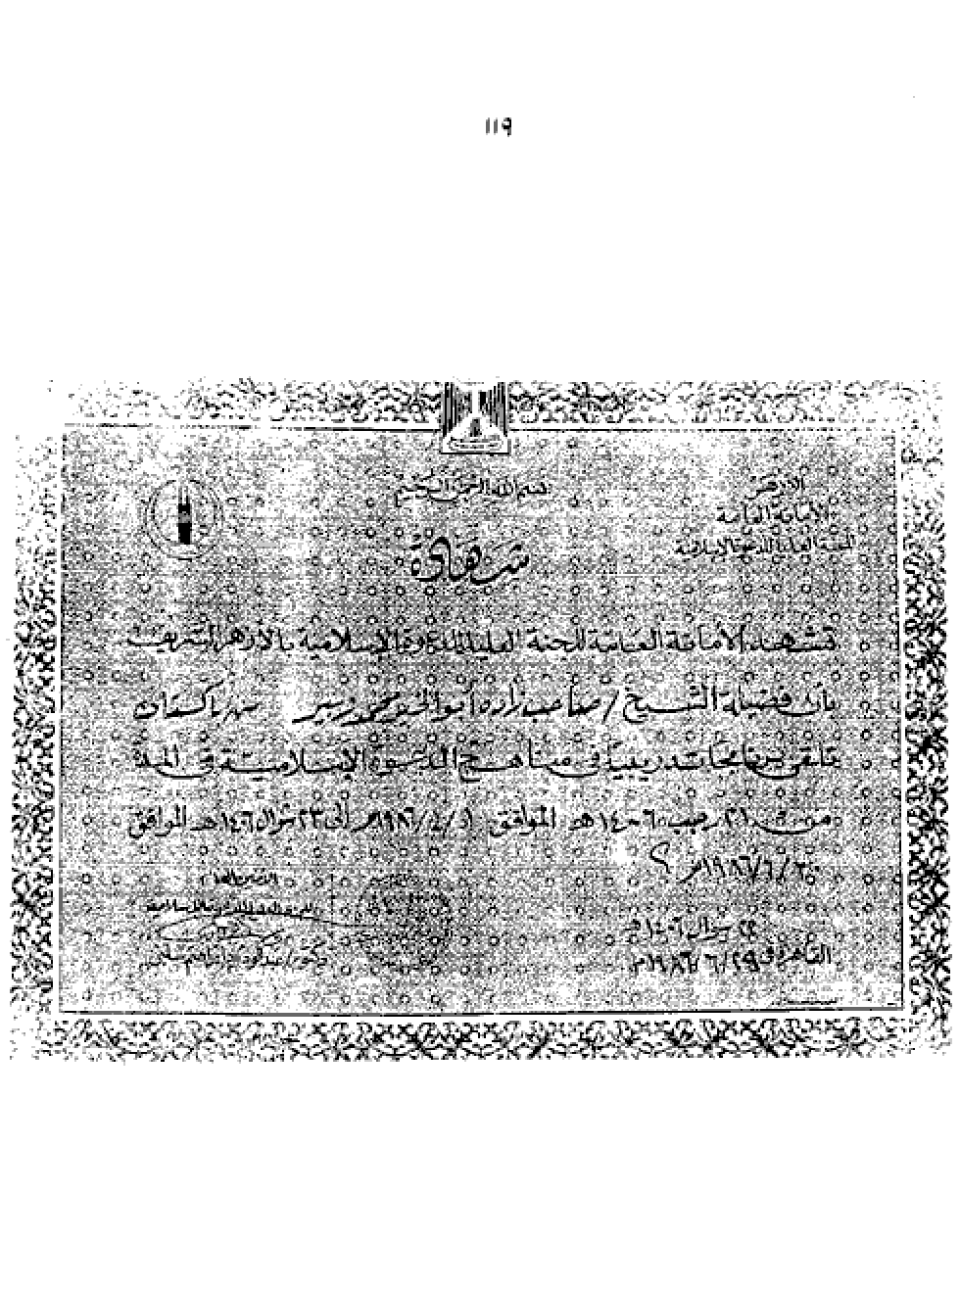 ١١٩
بسم الله الرحمن الرحيم
الأزهر
الأمانة العامة
للجنة العليا للدعوة الإسلامية
شهادة
تشهد الأمانة العامة للجنة العليا للدعوة الإسلامية بالأزهر الشريف
بأن فضيلة الشيخ / صاحب زاده أبو الخير محمد زبير من باكستان
تلقى برنامجا تدريبيا فى مناهج الدعوة الإسلامية فى المدة
من ٢١ رجب ١٤٠٦ هـ الموافق ١/٤/١٩٨٦م إلى ٢٣ شوال ١٤٠٦ هـ الموافق
٣٠/٦/١٩٨٦م
الأمين العام
للجنة العليا للدعوة الإسلامية
دكتور/
٢٢ شوال ١٤٠٦ هـ
القاهرة فى ٢٩/٦/١٩٨٦م